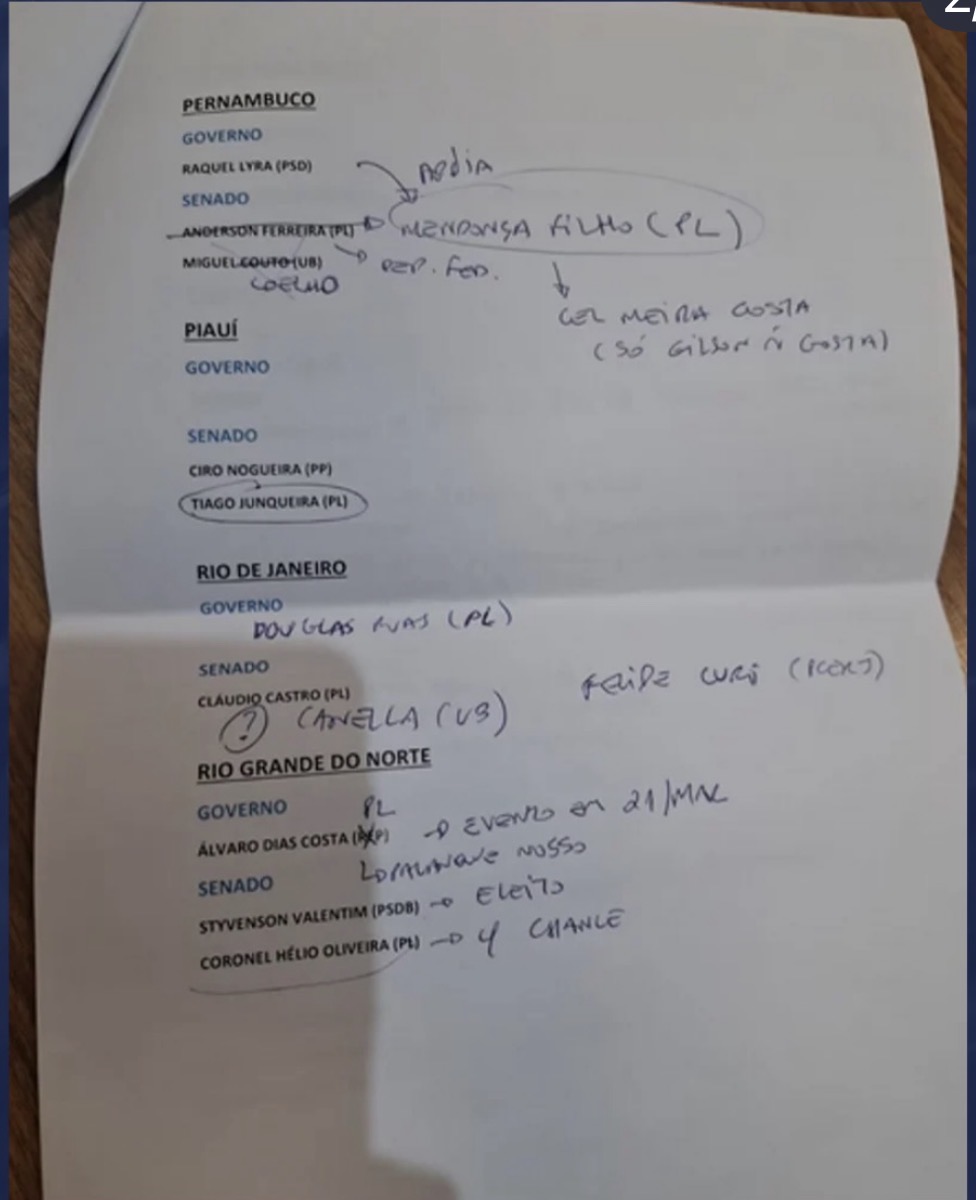 PERNAMBUCO
GOVERNO
RAQUEL LYRA (PSD) APÓIA
SENADO
ANDERSON FERREIRA (PL) MENDONÇA FILHO (PL)
MIGUEL COUTO (UB) DEP. FED.
COELHO
CEL MEIRA GOSTA
(SÓ GILSON Ñ GOSTA)
PIAUÍ
GOVERNO
SENADO
CIRO NOGUEIRA (PP)
TIAGO JUNQUEIRA (PL)
RIO DE JANEIRO
GOVERNO
DOUGLAS RUAS (PL)
SENADO
CLÁUDIO CASTRO (PL) FELIPE CURI (PCERJ)
? CANELLA (UB)
RIO GRANDE DO NORTE
GOVERNO PL
ÁLVARO DIAS COSTA EVENTO EM 21/MAR
PALANQUE NOSSO
SENADO
STYVENSON VALENTIM (PSDB) ELEITO
CORONEL HÉLIO OLIVEIRA (PL) CHANCE